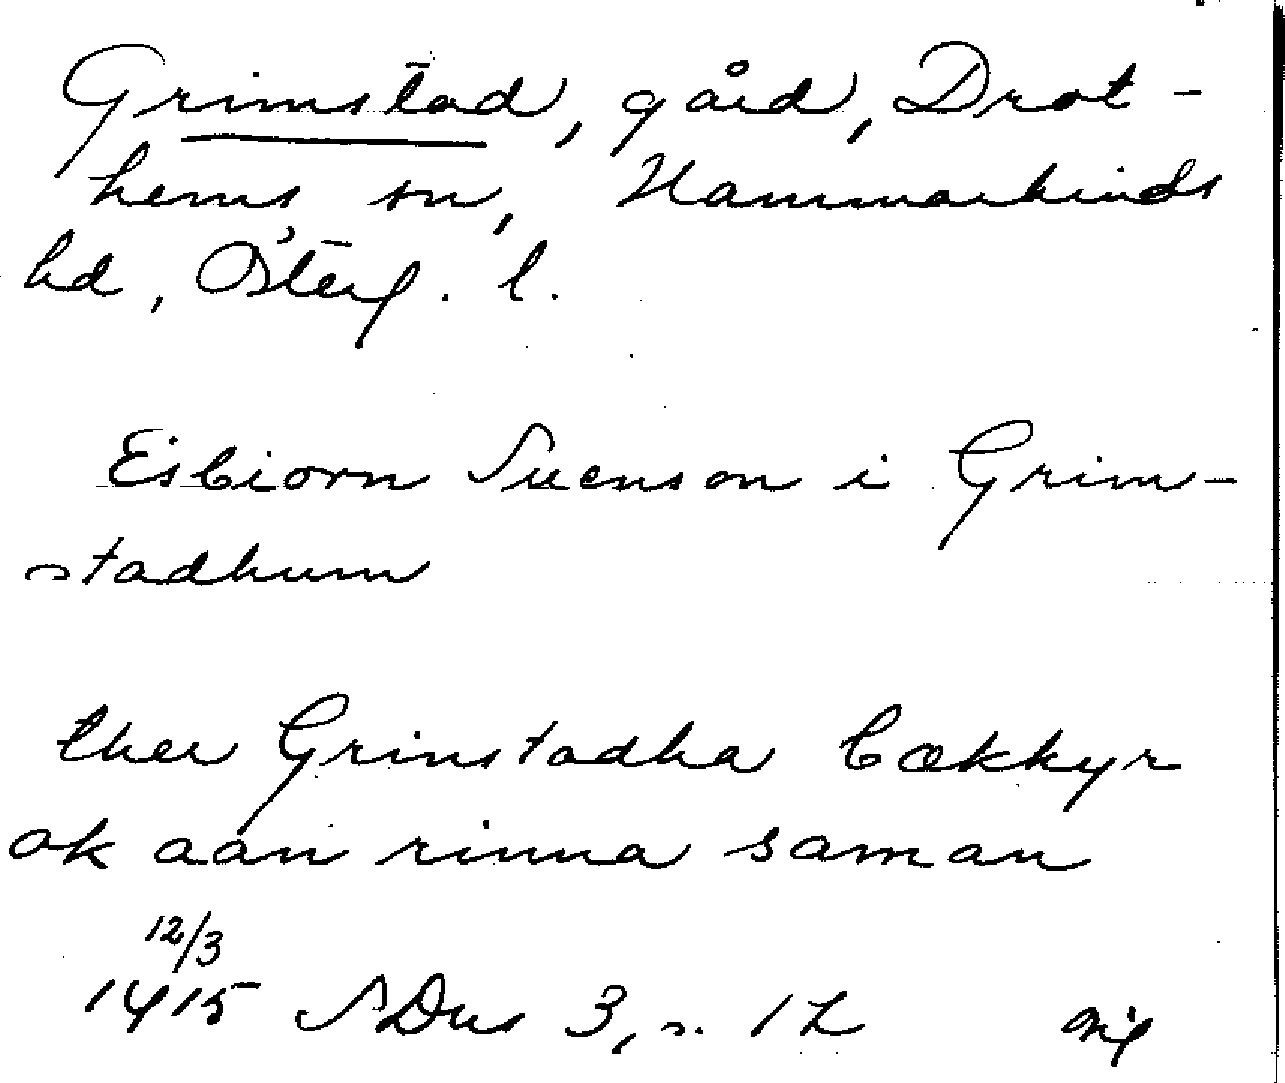 Grimstad, gård, Drot-
hems sn, Hammarkinds
hd, Österg. l.
Esbiorn Suenson i Grim-
stadhum
ther Grinstadha bækkyr
ok aan rinna saman
12/3
1415 SDns 3, s. 12